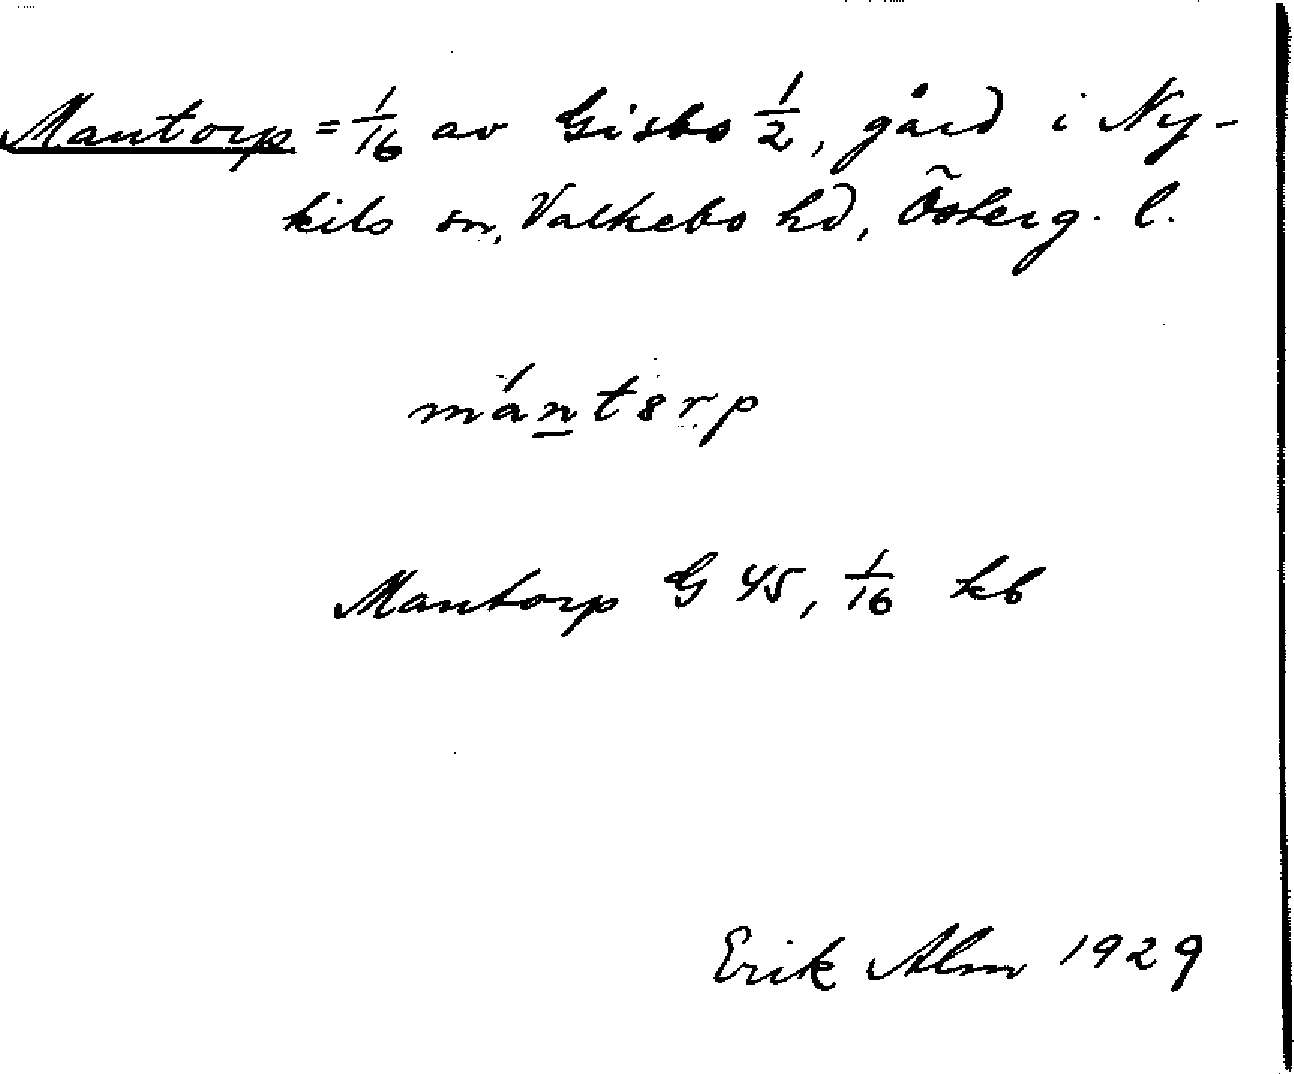 Mantorp = 1/16 av Gisbo 1/2, gård i Ny-
kils sn, Valkebo hd, Österg. l.
mántȣrp
Mantorp G 45, 1/16 kb
Erik Alm 1929